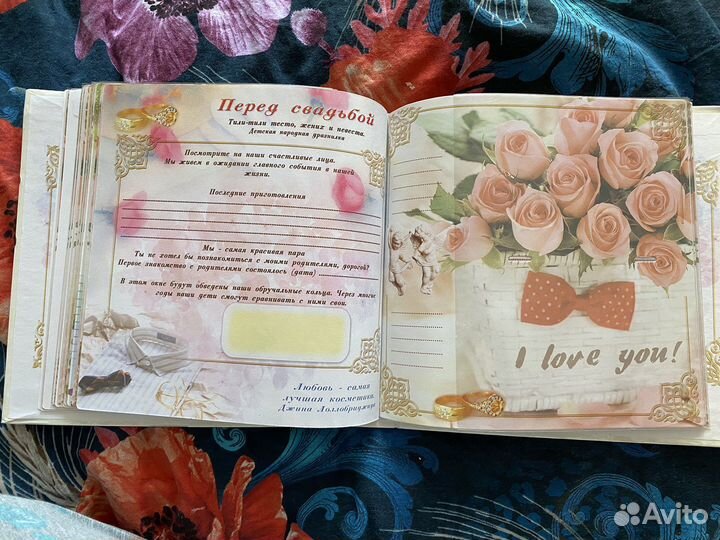 Перед свадьбой
Тили-тили тесто, жених и невеста.
Детская народная дразнилка
Посмотрите на наши счастливые лица.
Мы живем в ожидании главного события в нашей
жизни.
Последние приготовления
Мы - самая красивая пара
Ты не хотел бы познакомиться с моими родителями, дорогой?
Первое знакомство с родителями состоялось (дата)
В этом окне будут обведены наши обручальные кольца. Через многие
годы наши дети смогут сравнивать с ними свои.
Любовь - самая
лучшая косметика.
Джина Лоллобриджида
I love you!
Avito